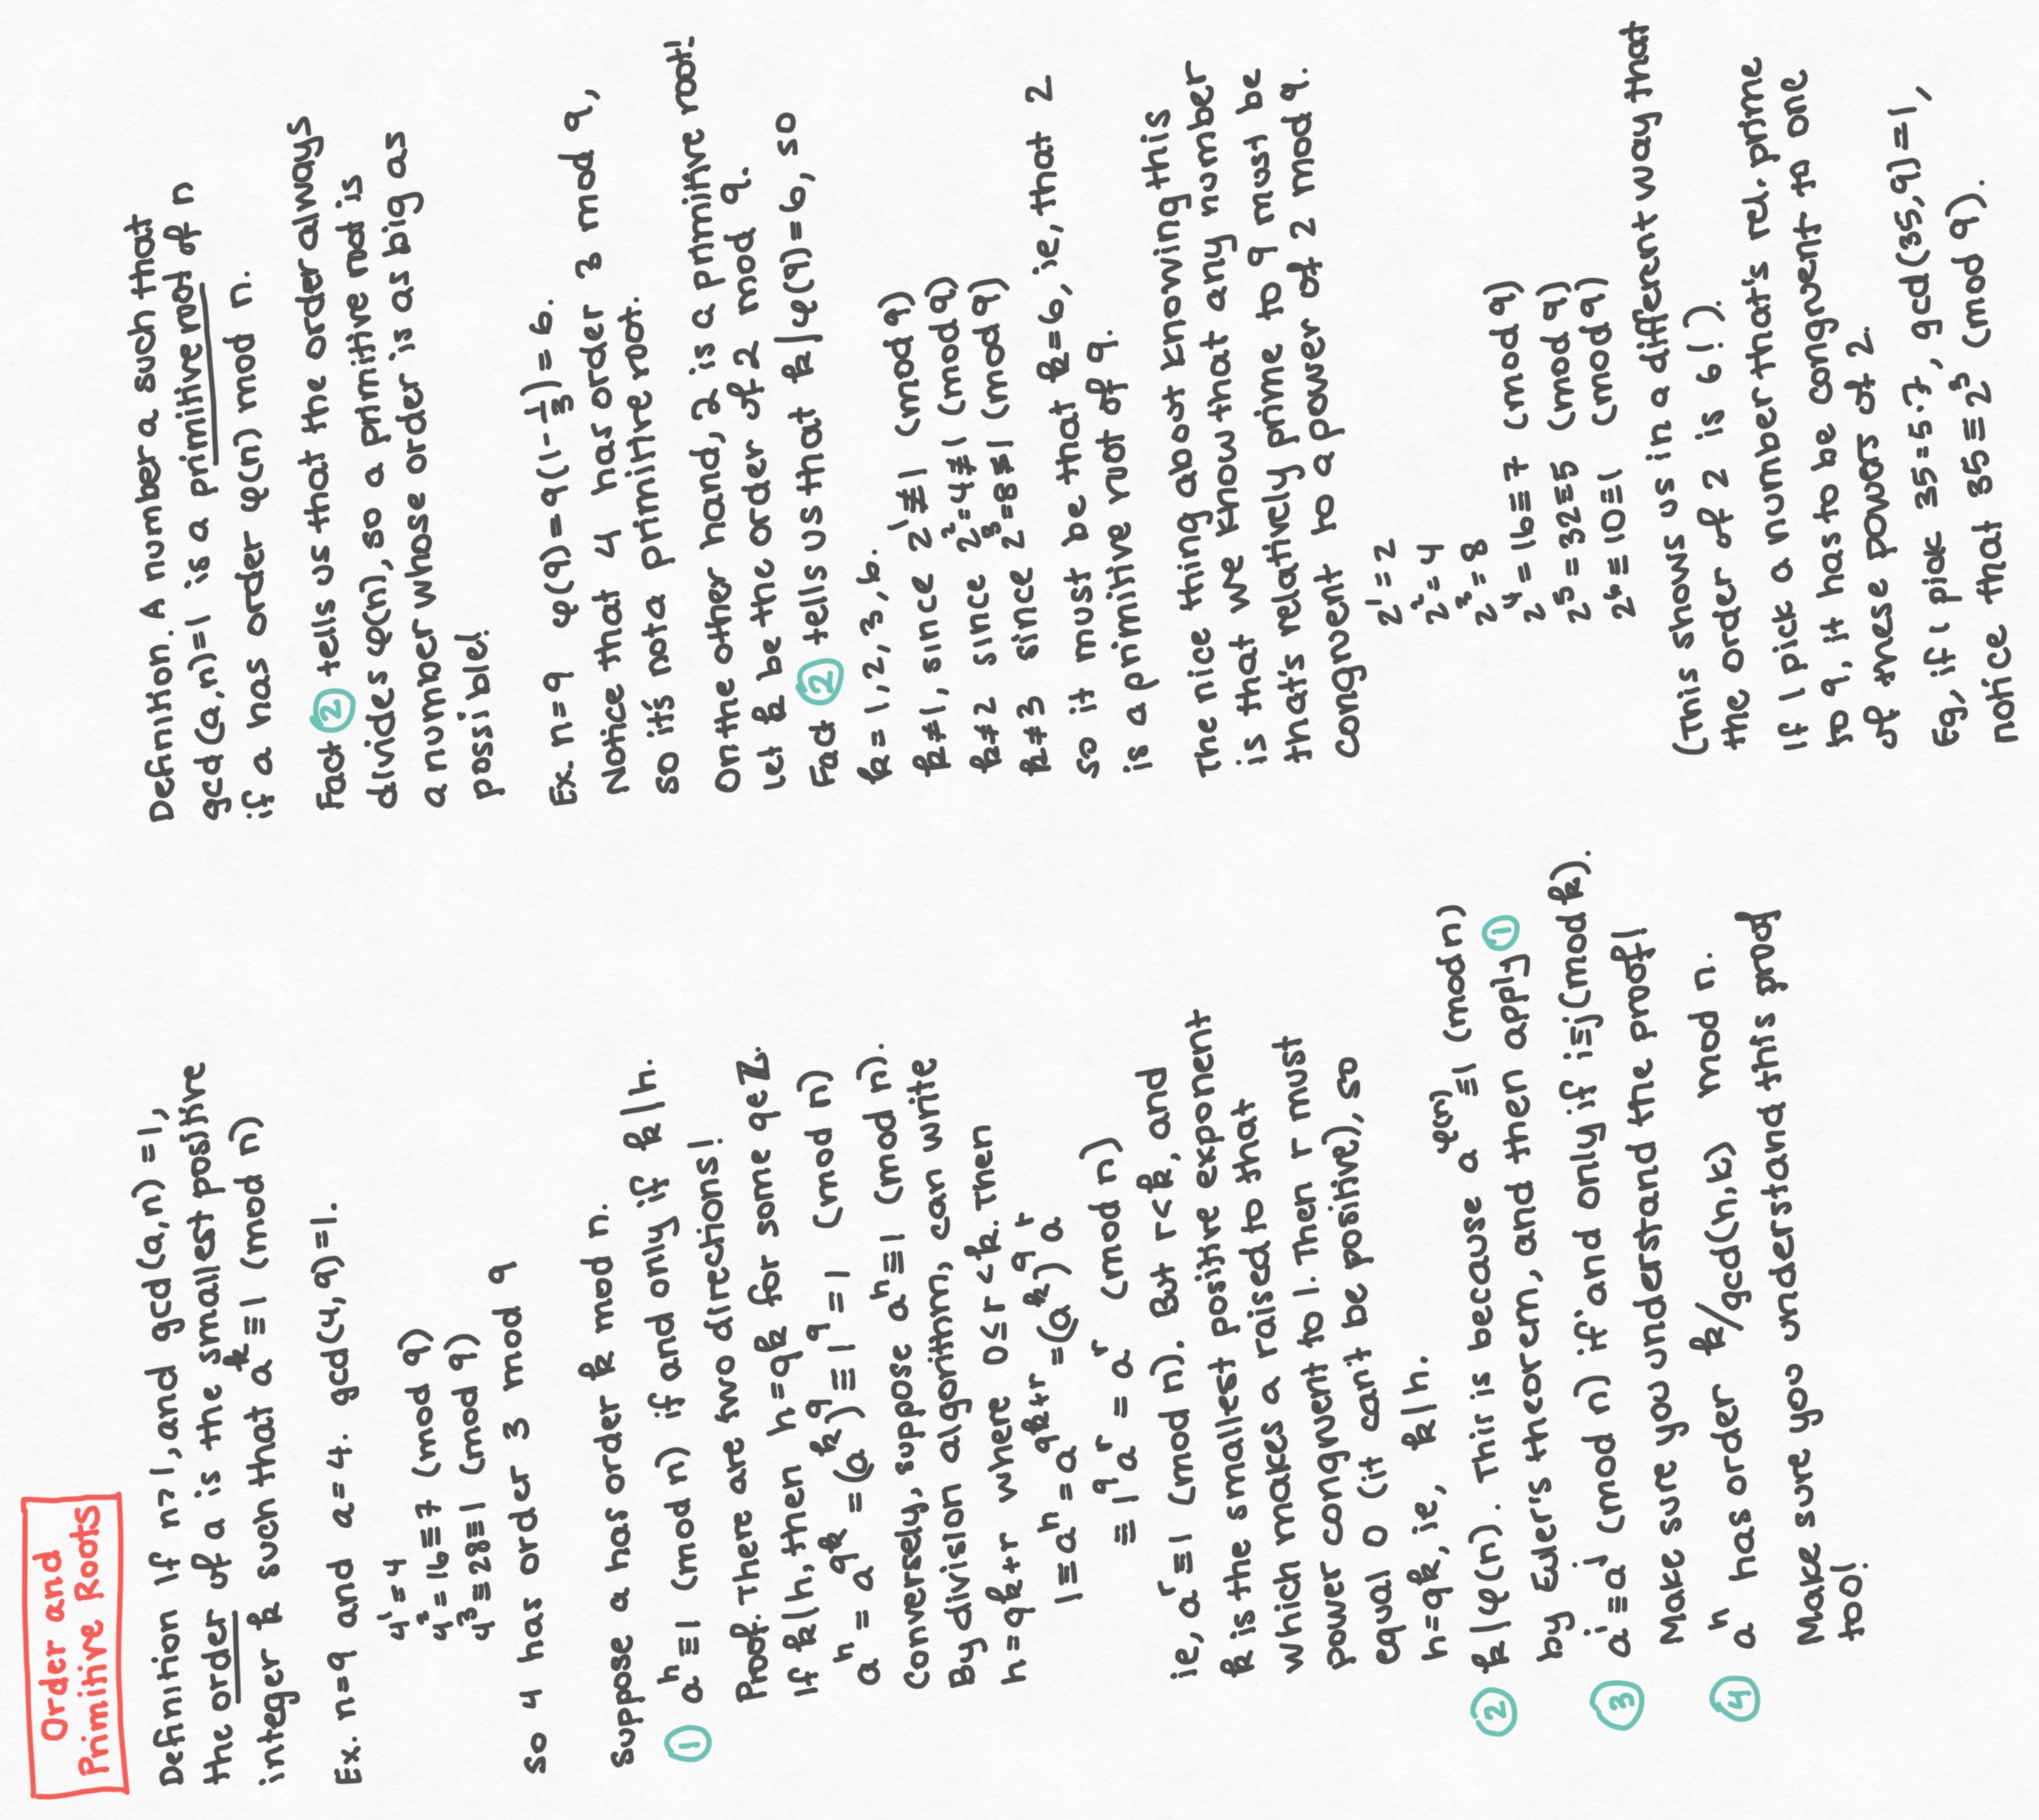 Order and
Primitive Roots
Definition If n>1, and gcd(a,n)=1,
the order of a is the smallest positive
integer k such that a^k≡1 (mod n)
Ex. n=9 and a=4. gcd(4,9)=1.
4^1=4
4^2=16≡7 (mod 9)
4^3≡28≡1 (mod 9)
So 4 has order 3 mod 9
Suppose a has order k mod n.
① a^h≡1 (mod n) if and only if k|h.
Proof. There are two directions!
If k|h, then h=qk for some q∈ℤ.
a^h = a^qk = (a^k)^q ≡ 1^q = 1 (mod n)
Conversely, suppose a^h≡1 (mod n).
By division algorithm, can write
h=qk+r where 0≤r<k. Then
1≡a^h=a^qk+r=(a^k)^q a^r
≡ 1^q a^r = a^r (mod n)
ie, a^r≡1 (mod n). But r<k, and
k is the smallest positive exponent
which makes a raised to that
power congruent to 1. Then r must
equal 0 (it can't be positive), so
h=qk, ie, k|h.
② k|φ(n). This is because a^φ(n)≡1 (mod n)
by Euler's theorem, and then apply ①
③ a^i≡a^j (mod n) if and only if i≡j(mod k).
Make sure you understand the proof!
④ a^h has order k/gcd(h,k) mod n.
Make sure you understand this proof
too!
Definition. A number a such that
gcd(a,n)=1 is a primitive root of n
if a has order φ(n) mod n.
Fact ② tells us that the order always
divides φ(n), so a primitive root is
a number whose order is as big as
possible!
Ex. n=9 φ(9)=9(1-1/3)=6.
Notice that 4 has order 3 mod 9,
so it's not a primitive root.
On the other hand, 2 is a primitive root!
Let k be the order of 2 mod 9.
Fact ② tells us that k|φ(9)=6, so
k=1,2,3,6.
k≠1, since 2^1≢1 (mod 9)
k≠2 since 2^2=4≢1 (mod 9)
k≠3 since 2^3=8≢1 (mod 9)
so it must be that k=6, ie, that 2
is a primitive root of 9.
The nice thing about knowing this
is that we know that any number
that's relatively prime to 9 must be
congruent to a power of 2 mod 9.
2^1=2
2^2=4
2^3=8
2^4=16≡7 (mod 9)
2^5=32≡5 (mod 9)
2^6≡10≡1 (mod 9)
(This shows us in a different way that
the order of 2 is 6!).
If I pick a number that's rel. prime
to 9, it has to be congruent to one
of these powers of 2.
Eg, if I pick 35=5·7, gcd(35,9)=1,
notice that 35≡2^3 (mod 9).